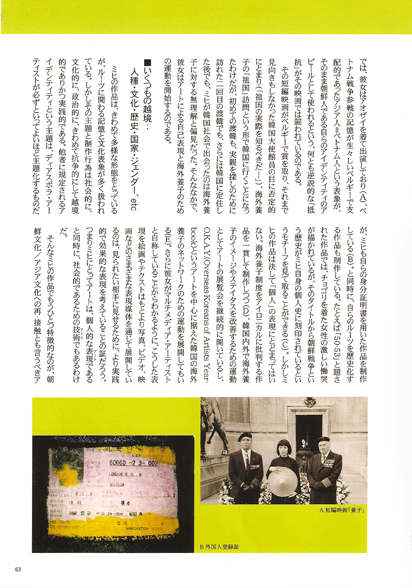 では、彼女はアオザイを着て出演しており（A）、ベ
トナム戦争参戦の記憶が生々しいベルギーで支
配的であった「アジア人＝ベトナム人」という表象が、
そのまま朝鮮人である自らのアイデンティティのア
ピールとして使われるという、何とも逆説的な「抵
抗」がその映画では狙われているのである。
その短編映画がベルギーで賞を取り、それまで
見向きもしなかった韓国大使館員の目に否定的
にとまり（「祖国の実際を知るべきだ…」）、海外養
子の「祖国」訪問という形で韓国に行くことになっ
たわけだが、初めての渡韓も、実親を探しのために
訪れた二回目の渡韓でも、さらには韓国に定住し
た後でも、ミヒが韓国社会で出会ったのは海外養
子に対する無理解と偏見だった。そんななかで、
彼女はアートによる自己表現と海外養子のため
の運動を開始するのである。
■いくつもの越境：
人種・文化・歴史・国家・ジェンダー、etc
ミヒの作品は、きわめて多様な形態をとっている
が、ルーツに関わる記憶と文化表象が多く扱われ
ている。しかしその主題と制作行為は社会的に、
文化的に、政治的に、きわめて抗争的にして越境
的でありかつ実践的である。他者に規定されるア
イデンティティという主題は、ディアスポラ・アー
ティストが必ずといってよいほど主題化するものだ
が、ミヒ自らの身分証明書を用いた作品を制作
している（B）。と同時に、自己のルーツを歴史化す
る作品も制作している。たとえば「6.25-53」と題さ
れた作品では、チョゴリを着た女性の激しい慟哭
が描かれているが、そのタイトルから朝鮮戦争とい
う歴史がミヒ自身の個人史に刻印されているとい
うモチーフを見て取ることができる（C）。しかしミ
ヒの作品は決して「個人」の表現にとどまってはい
ない。海外養子制度をアイロニカルに批判する作
品を一貫して制作しつつ（D）、韓国内外で海外養
子のイメージやステイタスを改善するための運動
としてアートの展覧会を継続的に開いているし、
O.K.A.Y.(Overseas Koreans of Artists Year-
book)というアートを中心に据えた韓国の海外
養子のネットワークのための運動を展開してもい
る。さらに彼女がマルチメディア・アーティスト
と自称していることからもわかるとおり、こうした表
現を絵画やテクストはもとより写真、ビデオ、映
画などのさまざまな表現媒体を通して展開してい
るのは、見られたい相手に見せるために、より実践
的で効果的な表現を考えていることの証だろう。
つまりミヒにとってアートは、個人的な表現である
と同時に、社会的であるための技術でもあるわけ
だ。
そんなミヒの作品でもうひとつ特徴的なのが、朝
鮮文化／アジア文化への再・接触とも言うべきア
A.短編映画「養子」
B.外国人登録証
63